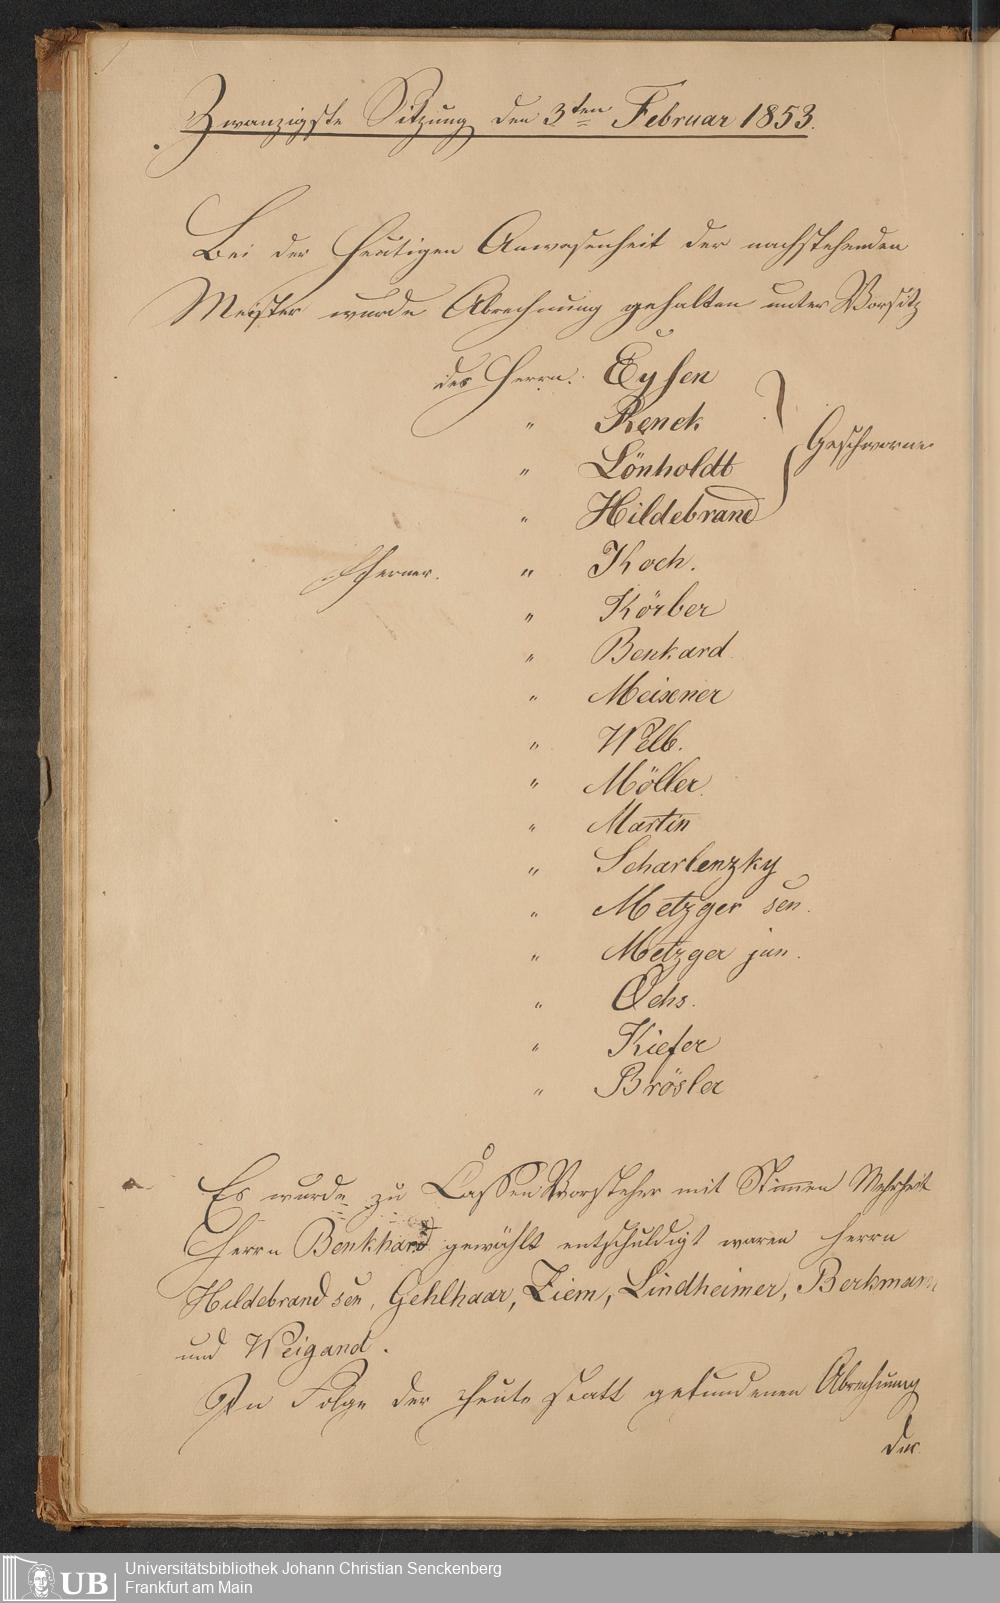 Zwanzigste Sitzung den 3ten Februar 1853.
Bei der heutigen Anwesenheit der nachstehenden
Meister wurde Abrechnung gehalten unter Vorsitz
des Herrn. Eysen
" Renck
" Lönholdt
" Hildebrand
Geschworne
ferner. " Koch.
" Körber
" Benkard
" Meixner
" Welb.
" Möller.
" Martin
" Scharlenzky
" Metzger sen.
" Metzger jun.
" Ochs.
" Kiefer
" Brösler
Es wurde zu Cassen Vorsteher mit Stimmen Mehrheit
Herrn Benkhard gewählt entschuldigt waren Herrn
Hildebrand sen, Gehlhaar, Ziem, Lindheimer, Berkmann
und Weigand.
In Folge der heute statt gefundenen Abrechnung
der
Universitätsbibliothek Johann Christian Senckenberg
Frankfurt am Main
UB